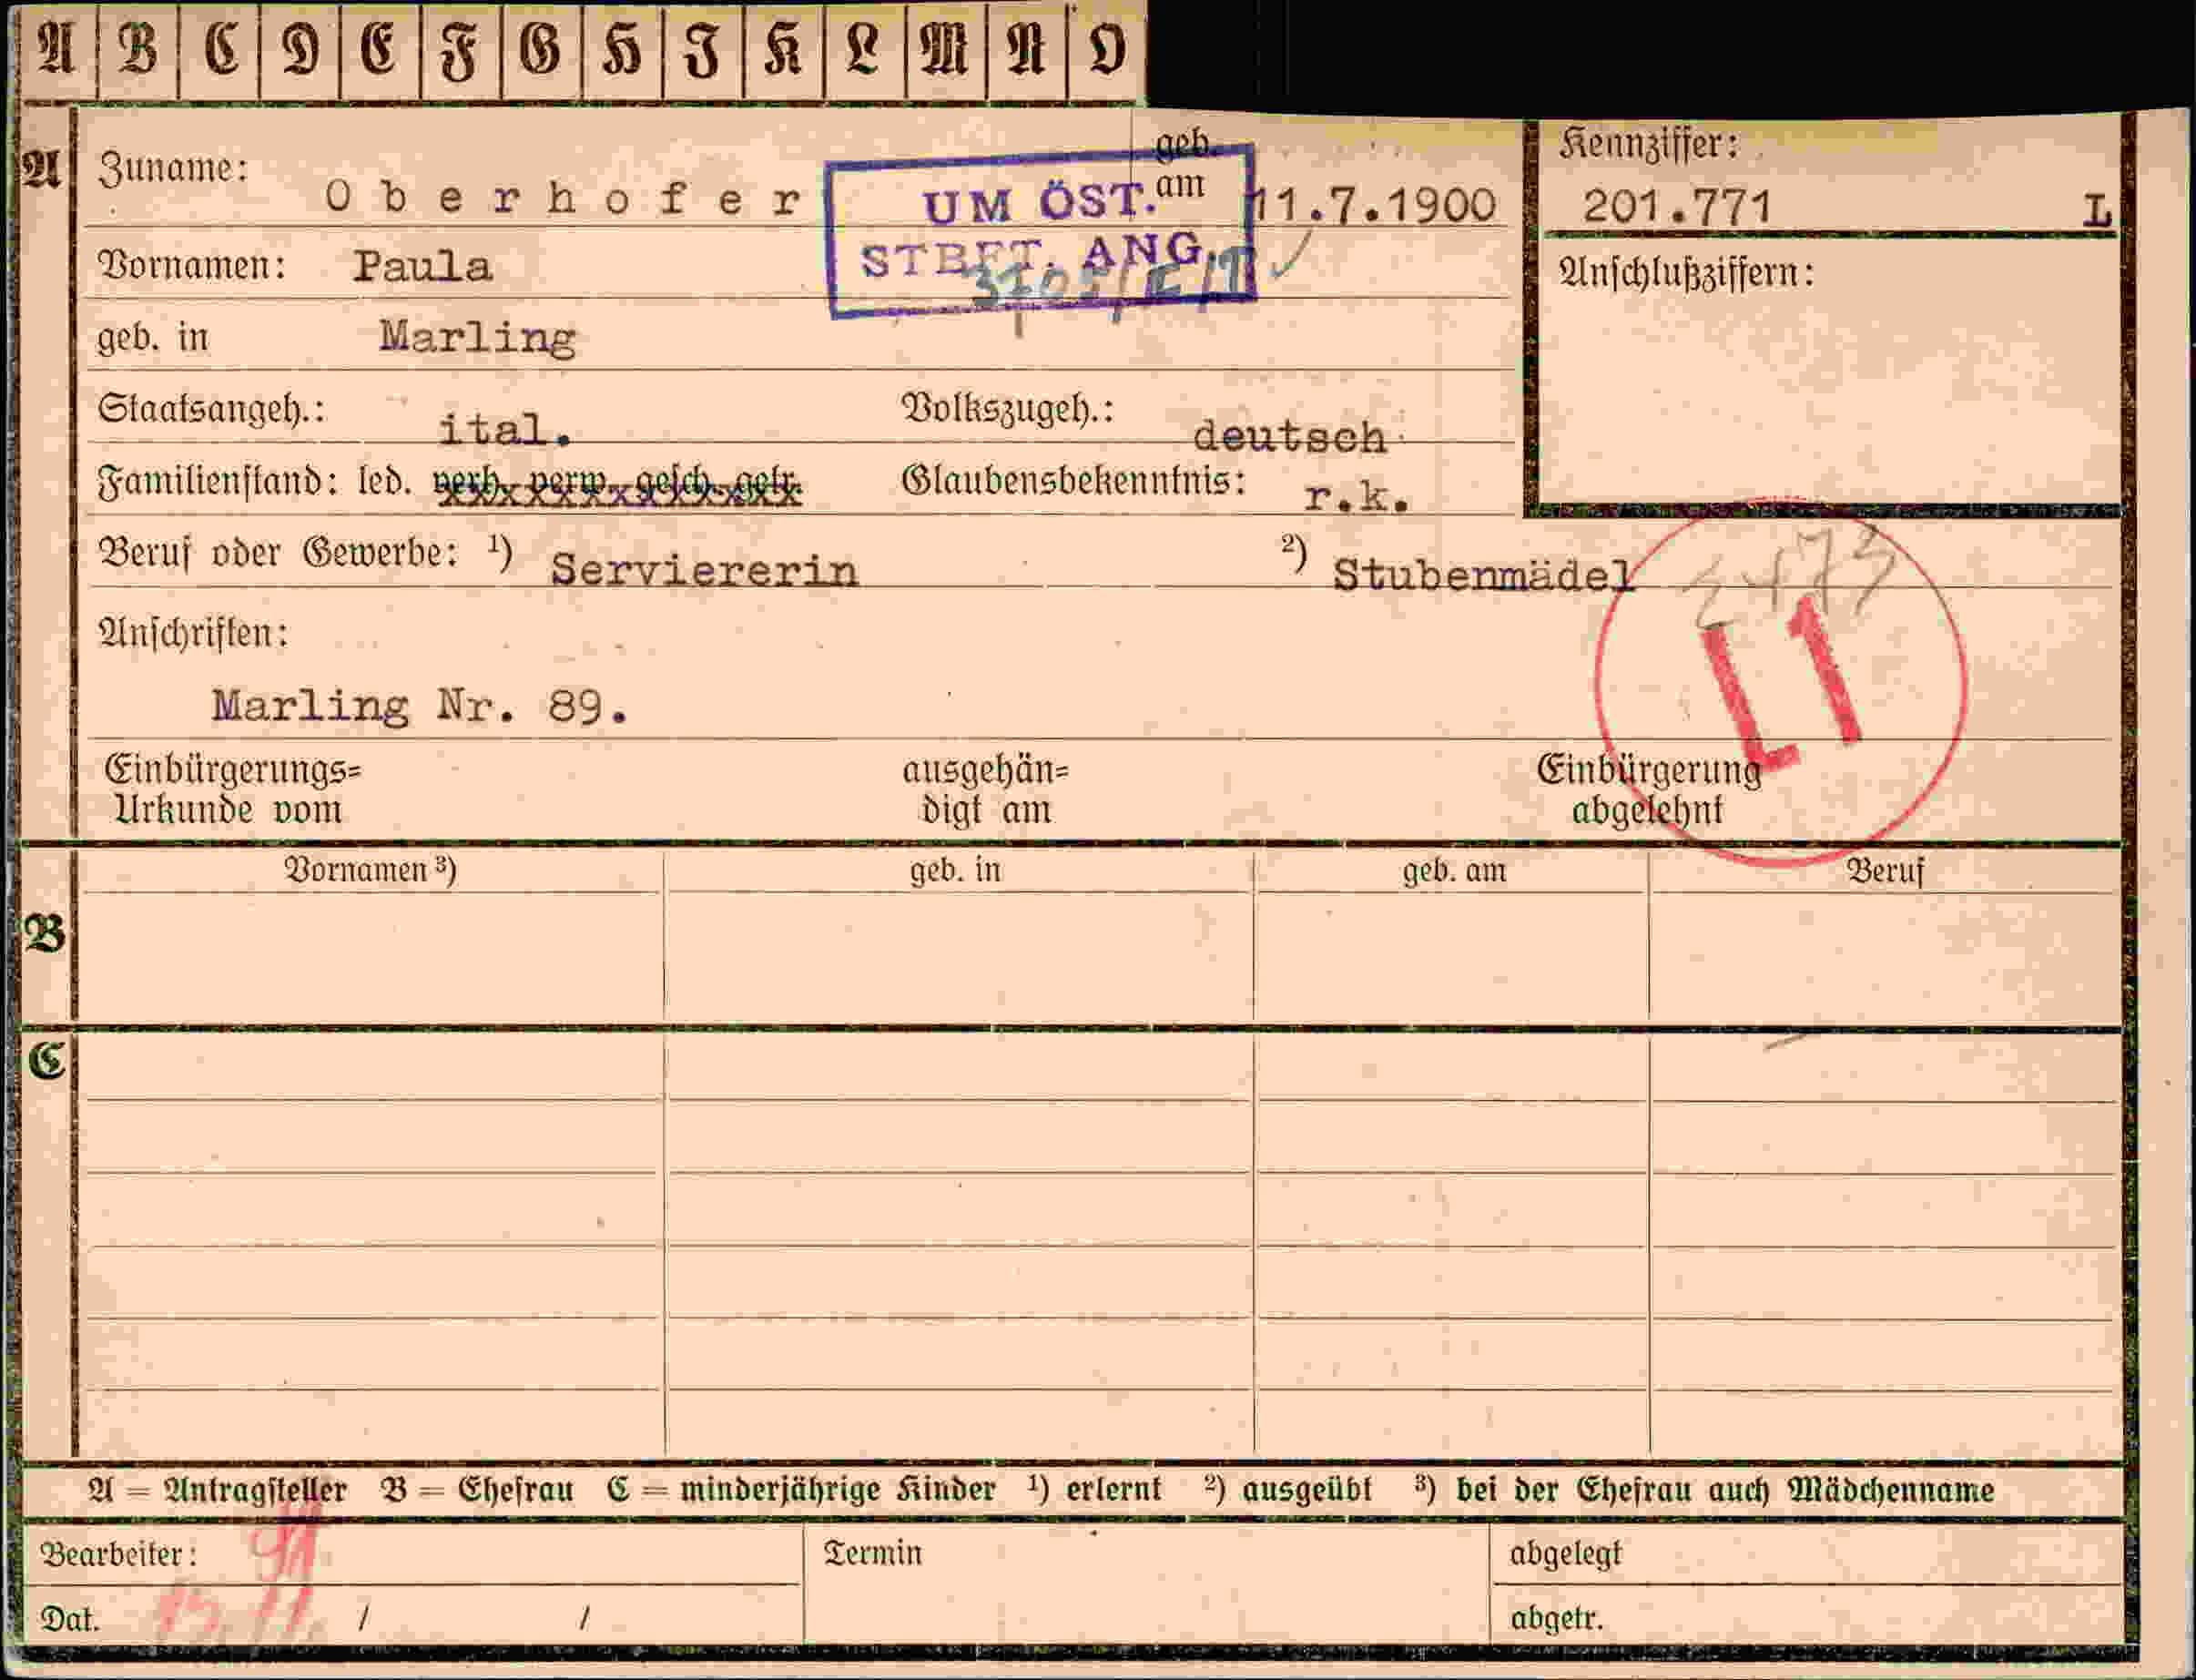 A B C D E F G H I K L M N O
A Zuname: Oberhofer geb. am 11.7.1900
UM ÖST.
STBFT. ANG.
Kennziffer:
201.771 L
Vornamen: Paula
Anschlußziffern:
geb. in Marling
Staatsangeh.: ital. Volkszugeh.: deutsch
Familienstand: led. verh. verw. gesch. getr. Glaubensbekenntnis: r.k.
Beruf oder Gewerbe: ¹) Serviererin ²) Stubenmädel
L1
Anschriften:
Marling Nr. 89.
Einbürgerungs= ausgehän= Einbürgerung
Urkunde vom digt am abgelehnt
Vornamen ³) geb. in geb. am Beruf
B
C
A = Antragsteller B = Ehefrau C = minderjährige Kinder ¹) erlernt ²) ausgeübt ³) bei der Ehefrau auch Mädchenname
Bearbeiter: Termin abgelegt
Dat. / / abgetr.